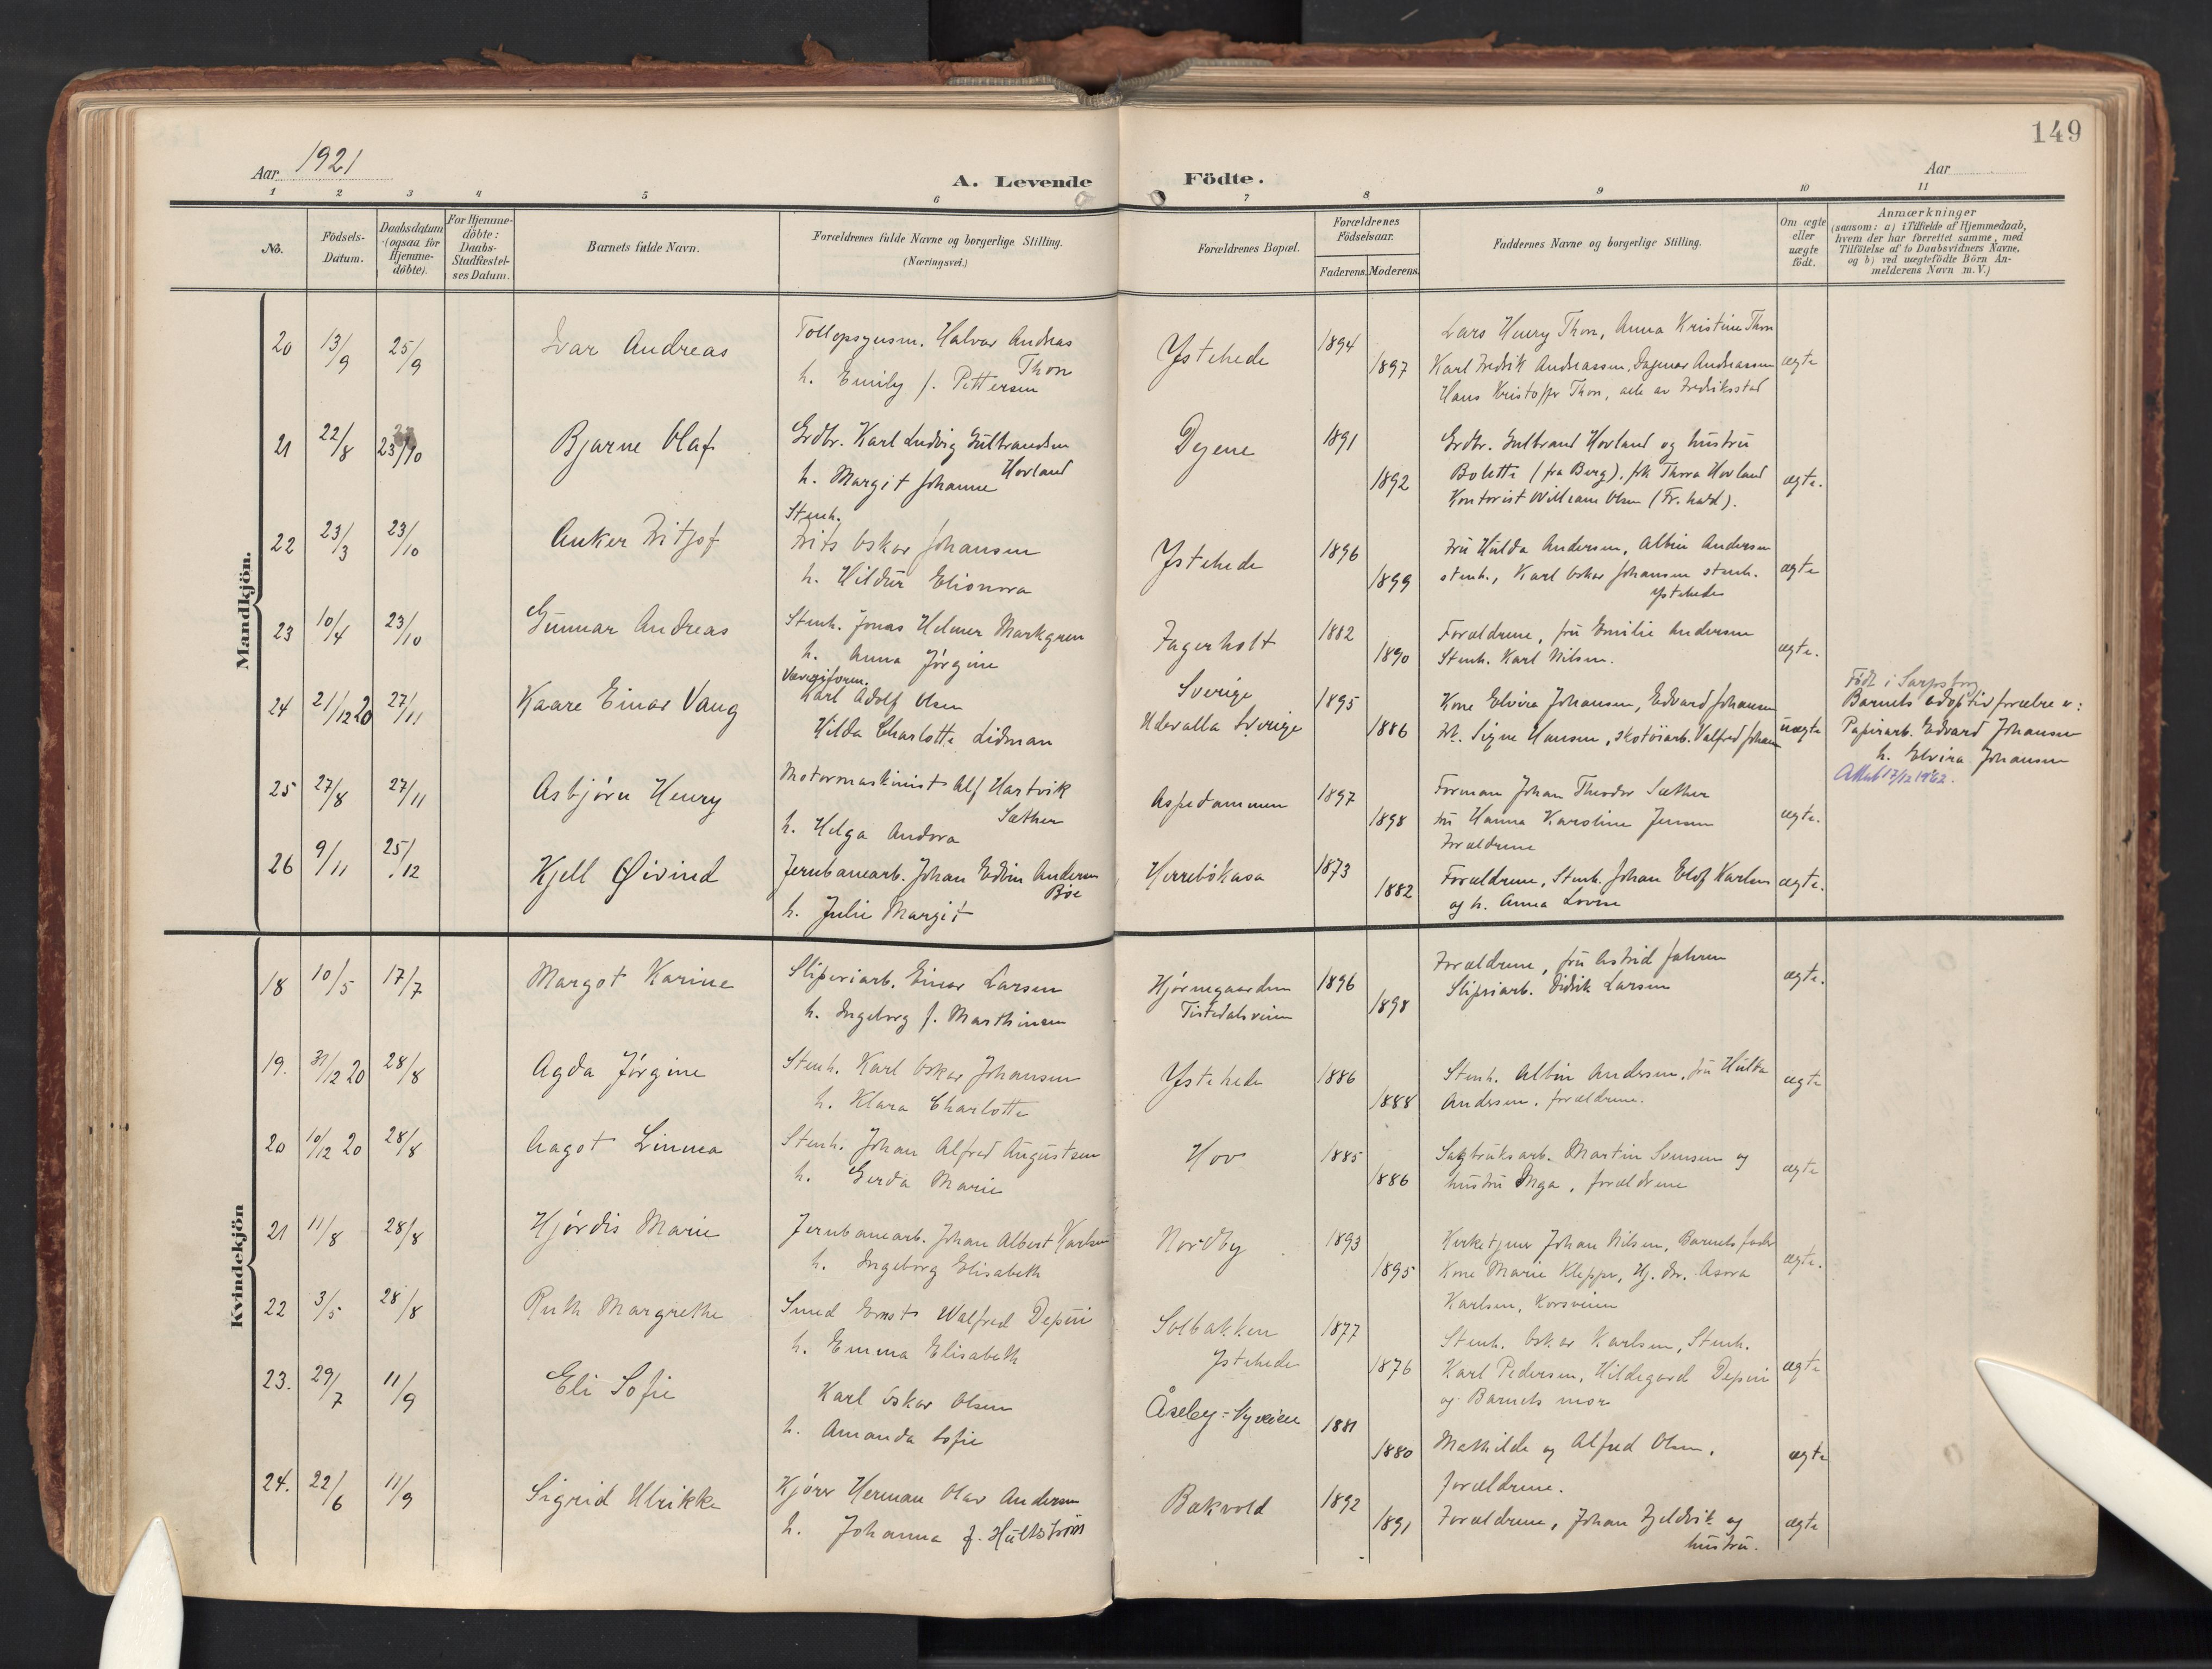 149
Aar 1921
A. Levende Födte.
Aar
1 2 3 4 5 6 7 8 9 10 11
No.
Födsels-
Datum.
Daabsdatum
(ogsaa for
Hjemme-
döbte).
For Hjemme-
döbte:
Daabs-
Stadfæstel-
ses Datum.
Barnets fulde Navn.
Forældrenes fulde Navne og borgerlige Stilling.
(Næringsvei.)
Forældrenes Bopæl.
Forældrenes
Födselsaar.
Faderens. Moderens.
Faddernes Navne og borgerlige Stilling.
Om ægte
eller
uægte
födt.
Anmærkninger
(saasom: a) i Tilfælde af Hjemmedaab,
hvem der har forrettet samme, med
Tilföielse af to Daabsvidners Navne,
og b) ved uægtefödte Börn An-
melderens Navn m. V.)
Mandkjön.
20 13/9 25/9 Ivar Andreas
Tollopsynsm. Halvor Andreas
Thon
h. Emily f. Pettersen
Ystehede 1894 1897
Lars Henry Thon, Anna Kristine Thon
Karl Fredrik Andreassen, Dagmar Andreassen
Hans Kristoffer Thon, alle av Fredriksstad
ægte
21 22/8 23/10 Bjarne Olaf
Grdbr. Karl Ludvig Gulbrandsen
Hovland
h. Margit Johanne
Dyene 1891 1892
Grdbr. Gulbrand Hovland og hustru
Bolette (fra Berg), frk Thora Hovland
Kontorist William Olsen (Fr.hald).
ægte.
22 23/3 23/10 Anker Fritjof
Stenh.
Frits Oskar Johansen
h. Hildur Elionora
Ystehede 1896 1899
Fru Hulda Andersen, Albin Andersen
stenh., Karl Oskar Johansen stenh.
Ystehede
ægte
23 10/4 23/10 Gunnar Andreas
Stenh. Jonas Helmer Markgren
h. Anna Jørgine
Fagerholt 1882 1890
Forældrene, fru Emilie Andersen
Stenh. Karl Nilsen.
ægte.
24 21/12 20 27/11 Kaare Einar Vaug
Karl Adolf Olsen
Hilda Charlotte Lidman
Sverige
Udevalla Sverige
1895 1886
Kone Elvira Johansen, Edvard Johansen
Frk. Signe Hansen, skotöiarb. Valfred Johansen
uægte
Födt i Sarpsborg
Barnets adoptivforældre er:
Papirarb. Edvard Johansen
h. Elvira Johansen
Attest 17/12 1942.
25 27/8 27/11 Asbjørn Henry
Motormaskinist Alf Hartvik
Sæther
h. Helga Andora
Aspedammen 1897 1898
Forman Johan Theodor Sæther
fru Hanna Karoline Jensen
Forældrene
ægte.
26 9/11 25/12 Kjell Øivind
Jernbanearb. Johan Edvin Andersen
Bøe
h. Julie Margit
Herrebøkasa 1873 1882
Forældrene, Stenh. Johan Elof Karlsen
og h. Anna Lovise
ægte.
Kvindekjön
18 10/5 17/7 Margot Karine
Sliperiarb. Einar Larsen
h. Ingeborg f. Marthinsen
Hjørnegaarden
Tistedalsveien
1896 1898
Forældrene, fru Astrid Johnsen
Sliperiarb. Didrik Larsen
ægte.
19. 31/12 20 28/8 Agda Jørgine
Stenh. Karl Oskar Johansen
h. Klara Charlotte
Ystehede 1886 1888
Stenh. Albin Andersen, fru Hulda
Andersen, forældrene.
ægte
20 10/12 20 28/8 Aagot Linnea
Stenh. Johan Alfred Augustsen
h. Gerda Marie
Hov 1885 1886
Sagbruksarb. Martin Svensen og
hustru Inga, forældrene
ægte
21 11/8 28/8 Hjördis Marie
Jernbanearb. Johan Albert Karlsen
h. Ingeborg Elisabeth
Nordby 1893 1895
Kirketjener Johan Nilsen, Barnets fader
Kone Marie Klepper, Hj. Dr. Asora
Karlsen, Korsveien
ægte.
22 3/5 28/8 Ruth Margrethe
Smed Ernst Walfred Depui
h. Emma Elisabeth
Solbakken
Ystehede
1877 1876
Stenh. Oskar Karlsen, Stenh.
Karl Pedersen, Hildegard Depui
og Barnets mor
ægte
23. 29/7 11/9 Eli Sofie
Karl Oskar Olsen
h. Amanda Sofie
Åseby-Nyveien 1881 1880
Mathilde og Alfred Olsen.
forældrene.
ægte
24. 22/6 11/9 Sigrid Ulrikke
Kjører Herman Olav Andersen
h. Johanna f. Hultström
Bakvold 1892 1891
Forældrene, Johan Fjeldvik og
hustru.
ægte